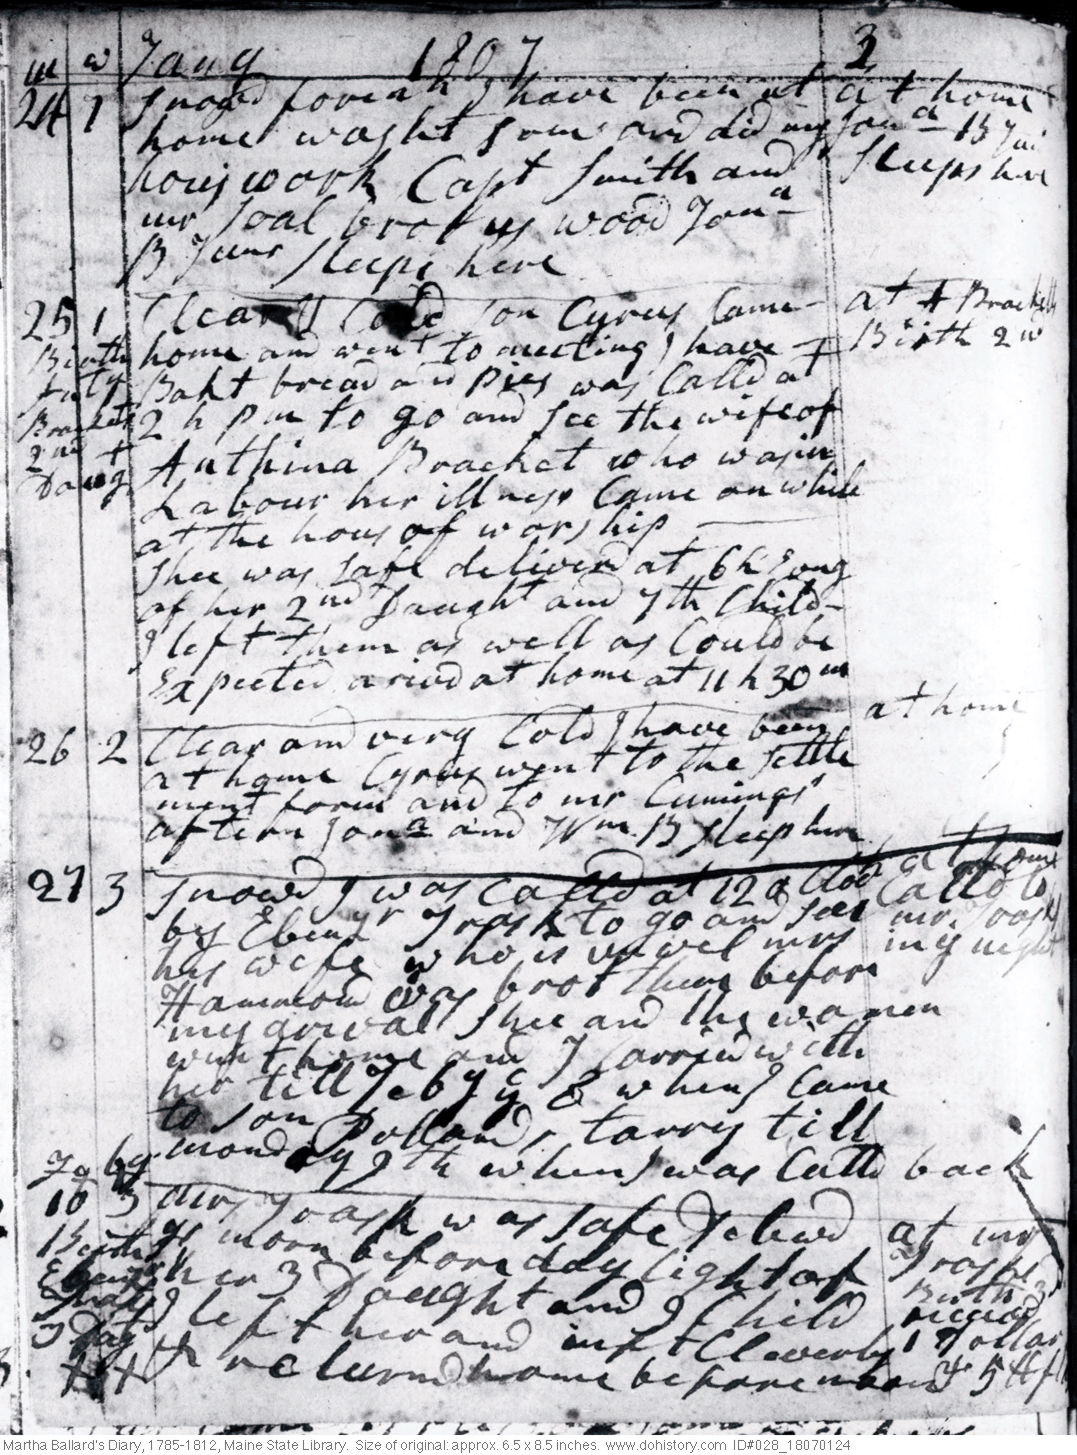 m w Jany 1807 3
24 7 Snowd forenn I have been at at home
home washt some and did my Jona B Jun
hous work Capt Smith and sleeps here
mr Soal brot us wood Jona
B Junr sleeps here
25 1 Clear & Cold son Cyrus Came at A Brackets
home and went to meeting I have Birth 2nd
Birth Bakt bread and pies was Calld at
2 h pm to go and see the wife of
Brackets
2nd Anthina Bracket who was in
Daug Labour her illness Came on while
at the hous of worship
Shee was safe deliverd at 6 h Evng
of her 2nd Daught and 7th Child
I left them as well as Could be
Expected arivd at home at 11 h 30 m
26 2 Clear and very Cold I have been at home
at home Cyrus went to the settle
ment form and to mr Cumings
aftern Jona and Wm B sleep here
27 3 Snowd I was Calld at 12 O Clok at home Calld to
by Ebenzr Trask to go and see mr Trasks
his wife who is unwel mrs in ys night
Hammond was brot there before
my arival shee and the women
went home and I tarried with
her till Feby ye 8 when I Came
to son Pollards tarry till
monday 9th when I was Calld back
Feby
10 3 mrs Trask was safe Delivrd at mr
Birth ys morn before day light of Trasks
Ebenzr her 3 Daught and Child Birth 3
Trasks I left her and inft Cleverly receivd
3 Dagt 1 Dollar
XX & returnd home before noon & 5 lb fl
Martha Ballard's Diary, 1785-1812, Maine State Library. Size of original: approx. 6.5 x 8.5 inches. www.dohistory.com ID#028_18070124